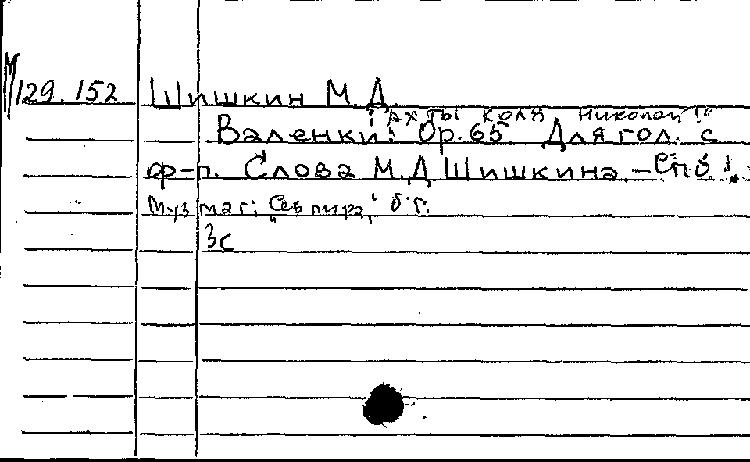 М129.152 Шишкин М. Д.
"Ах ты Коля Николай!"
Валенки: Ор. 65. Для гол. с
ф-п. Слова М. Д Шишкина. – Спб.,
Муз маг: "Сев лира," б. г.
3с